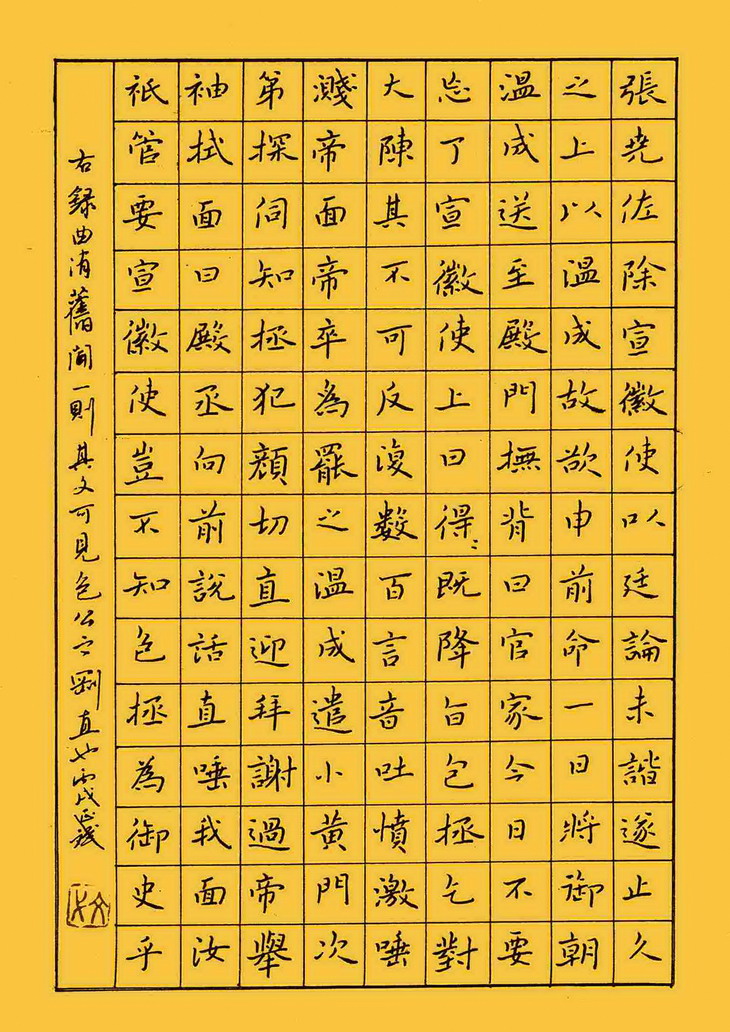 張堯佐除宣徽使以廷論未諧遂止久
之上以溫成故欲申前命一日將御朝
溫成送至殿門撫背曰官家今日不要
忘了宣徽使上曰得〻既降旨包拯乞對
大陳其不可反復數百言音吐憤激唾
濺帝面帝卒為罷之溫成遣小黃門次
第探伺知拯犯顏切直迎拜謝過帝舉
袖拭面曰殿丞向前說話直唾我面汝
祇管要宣徽使豈不知包拯為御史乎
右錄曲洧舊聞一則其文可見包公之剛直也